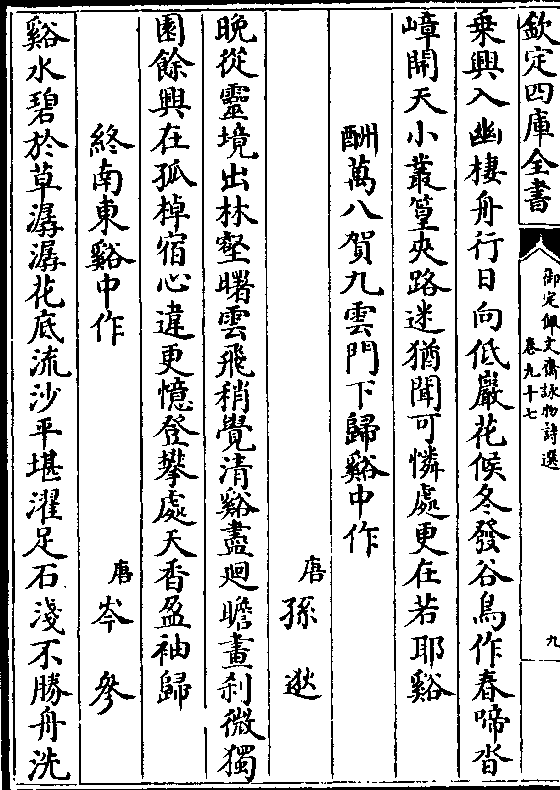 欽定四庫全書
御定佩文齋詠物詩選
卷九十七
九
乗興入幽棲舟行日向低巖花候冬發谷鳥作春啼沓
嶂開天小叢篁夾路迷猶聞可憐處更在若耶谿
酬萬八賀九雲門下歸谿中作
唐孫逖
晚從靈境出林壑曙雲飛稍覺清谿盡廻瞻畫刹微獨
園餘興在孤棹宿心違更憶登攀處天香盈袖歸
終南東谿中作
唐岑參
谿水碧於草潺潺花底流沙平堪濯足石淺不勝舟洗